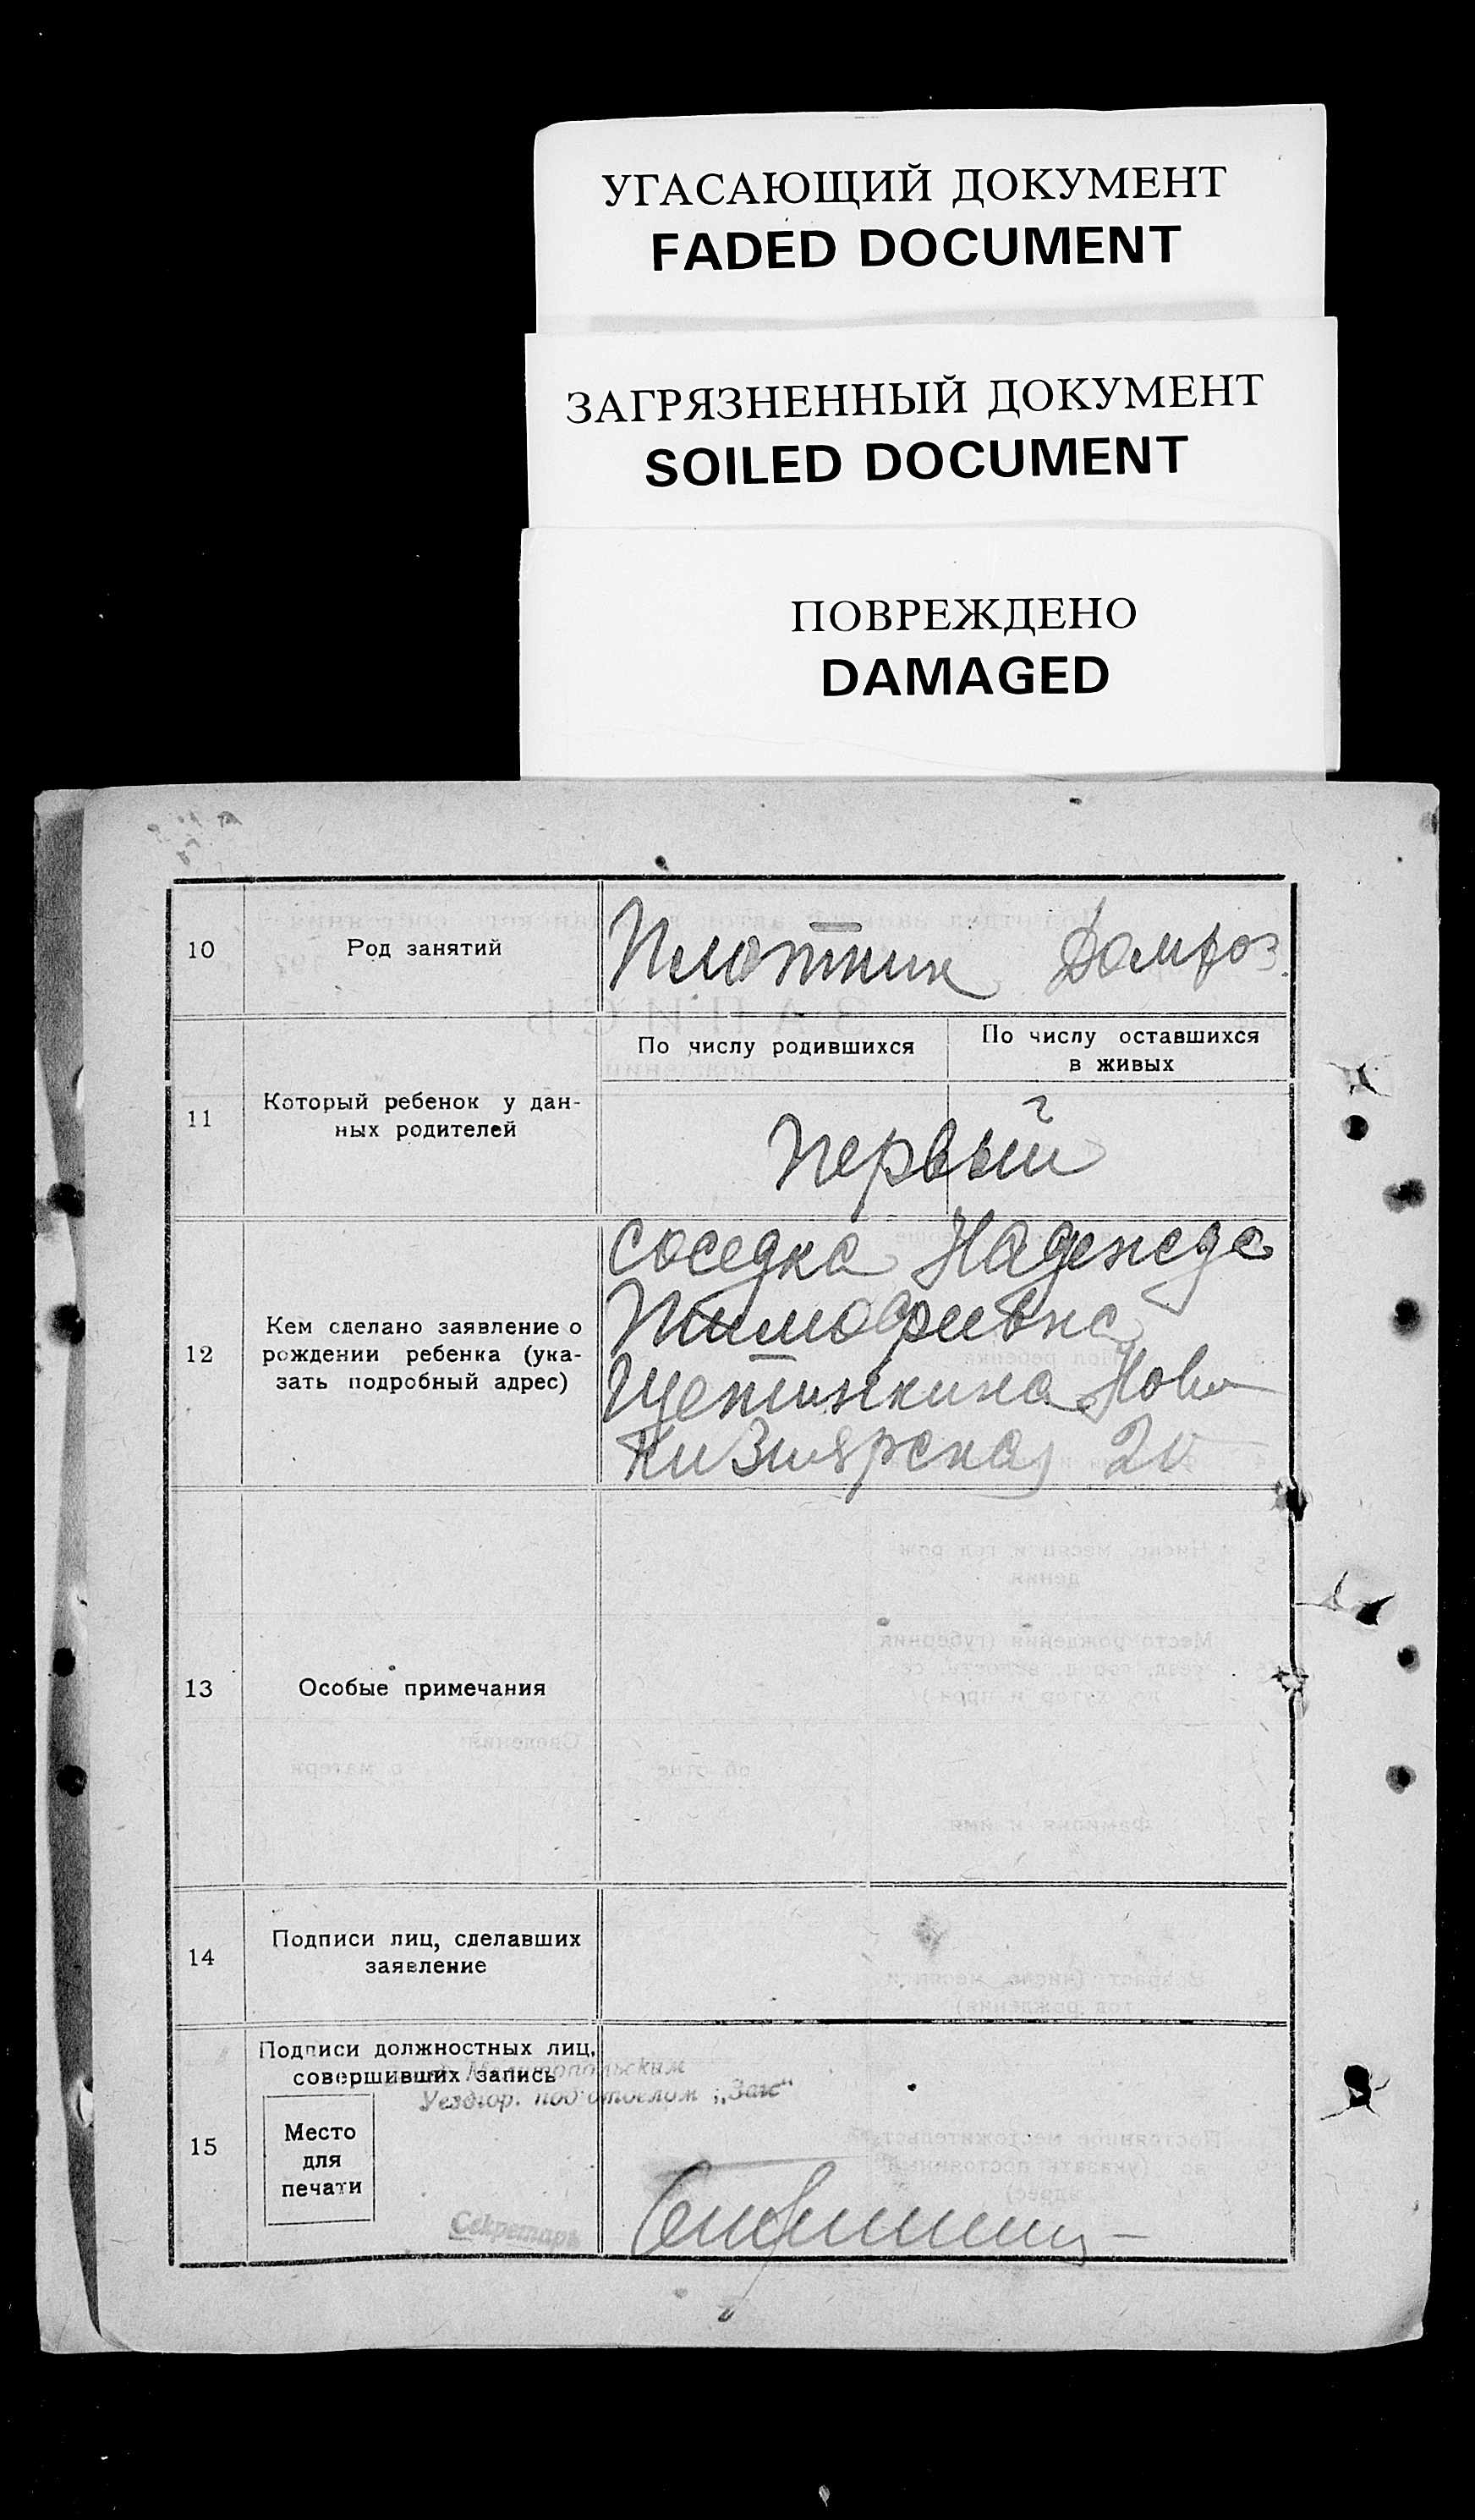 УГАСАЮЩИЙ ДОКУМЕНТ
FADED DOCUMENT
ЗАГРЯЗНЕННЫЙ ДОКУМЕНТ
SOILED DOCUMENT
ПОВРЕЖДЕНО
DAMAGED
10 Род занятий Плотник Домхоз.
11 Который ребенок у дан-
ных родителей
По числу родившихся
По числу оставшихся
в живых
первый
12 Кем сделано заявление о
рождении ребенка (ука-
зать подробный адрес)
соседка Надежда
Тимофеевна
Щетинкина Ново
Кизиярская 20
13 Особые примечания
14 Подписи лиц, сделавших
заявление
15 Подписи должностных лиц,
совершивших запись
Мелитопольским
Уездгор. подотделом „Загс“
Место
для
печати
Секретарь